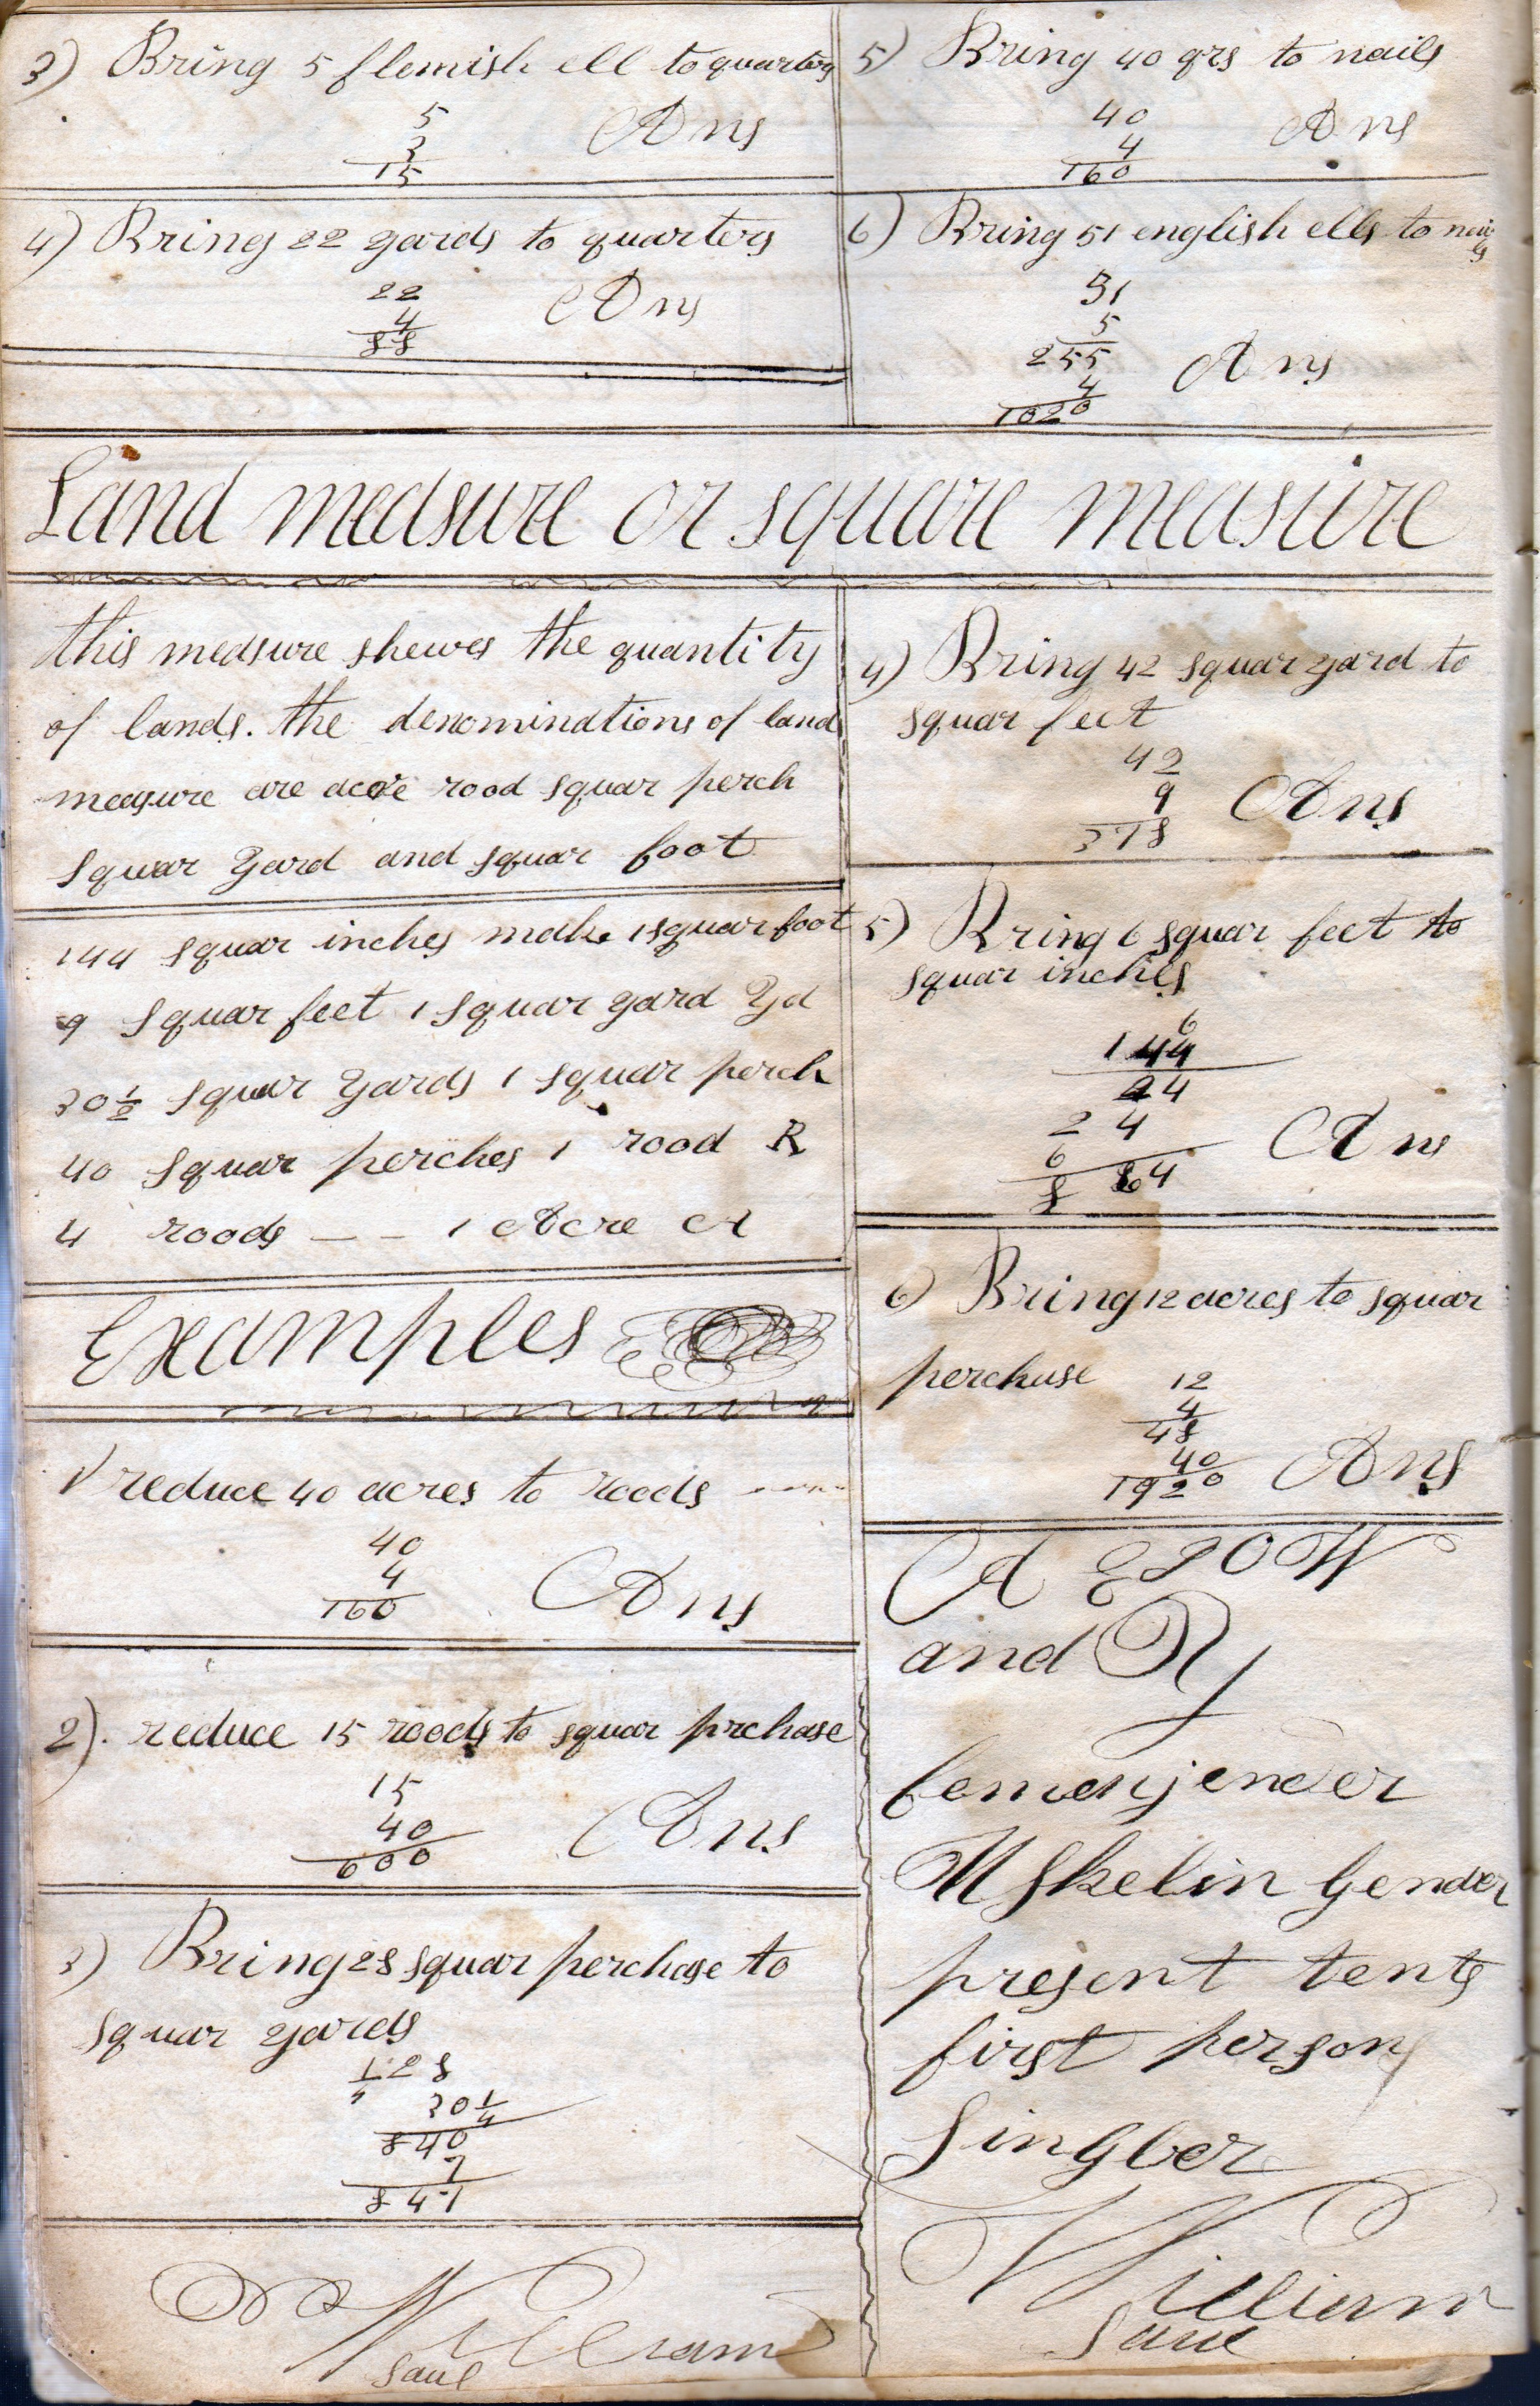 3) Bring 5 flemish ell to quarters
5
3
15
Ans
4) Bring 22 yards to quarters
22
4
88
Ans
5) Bring 40 qrs to nails
40
4
160
Ans
6) Bring 51 english ells to nails
51
5
255
4
1020
Ans
Land measure or square measure
this measure shewes the quantity
of lands. the denominations of land
measure are acore rood squar perch
squar yard and squar foot
144 squar inches make 1 squar foot
9 squar feet 1 squar yard Yd
30 1/2 squar yards 1 squar perch
40 squar perches 1 rood R
4 roods — — 1 Acre A
Examples
1) reduce 40 acres to roods
40
4
160
Ans
2). reduce 15 roods to squar prchase
15
40
600
Ans
3) Bring 28 squar perchase to
squar yards
1/4 28
30 1/4
840
7
847
William
Saul
4) Bring 42 squar yard to
squar feet
42
9
378
Ans
5) Bring 6 squar feet to
squar inches
6
144
24
24
6
864
Ans
6) Bring 12 acres to squar
perchase
12
4
48
40
1920
Ans
and
femenjender
Mskelin Gender
present tents
first person
Singler
William
Saul